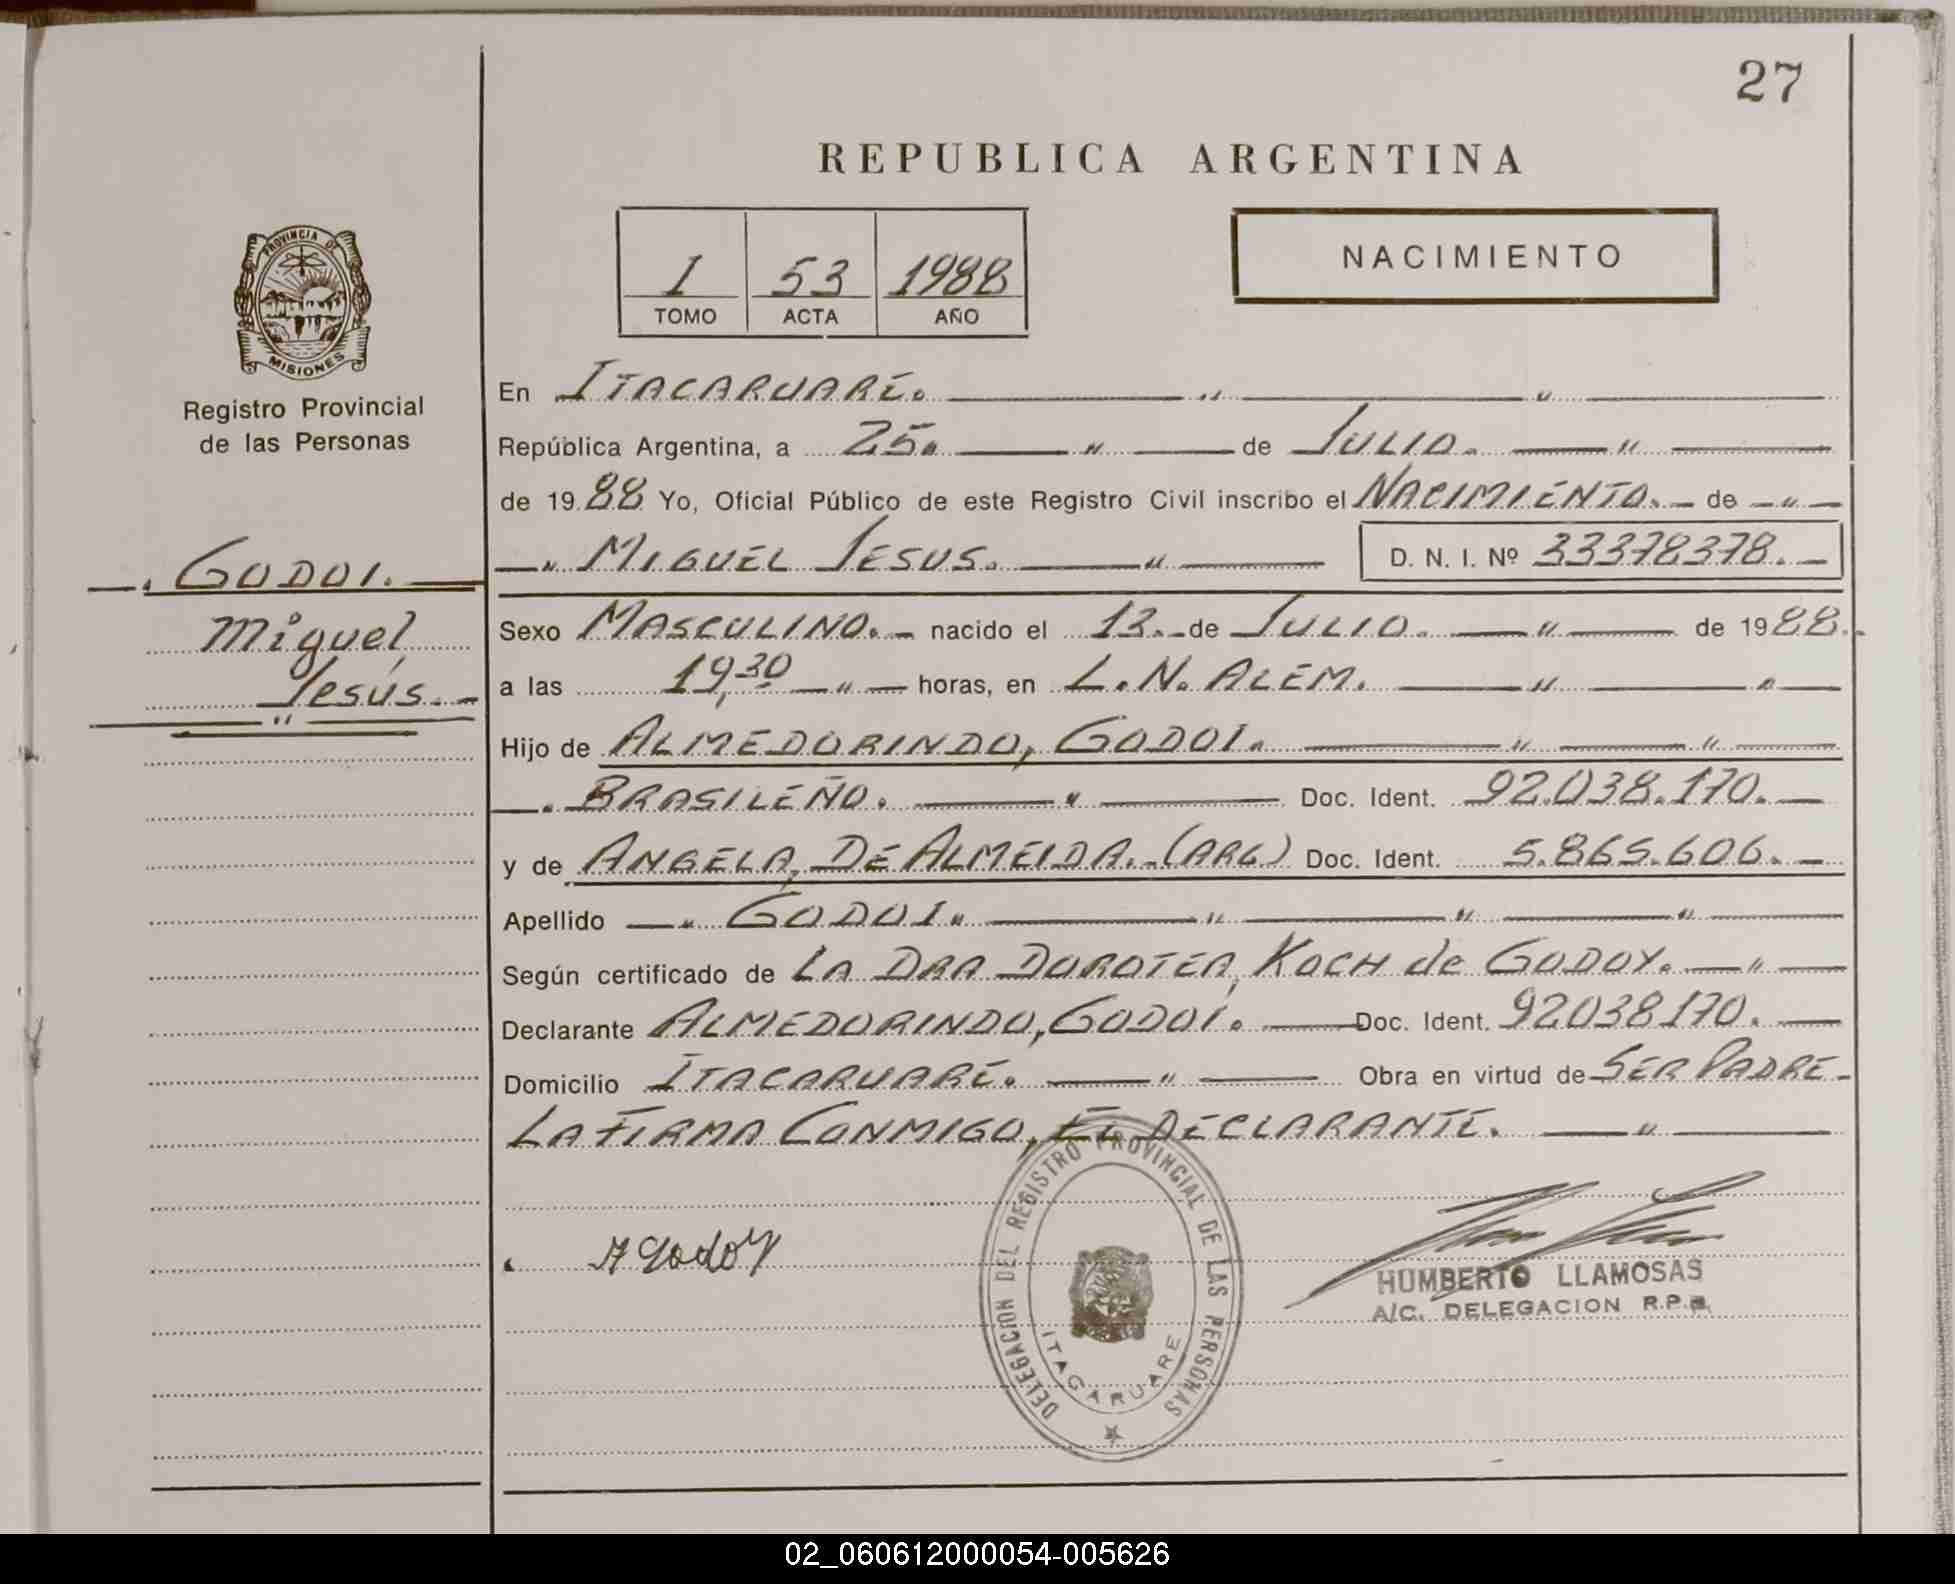 27
REPUBLICA ARGENTINA
I 53 1988
TOMO ACTA AÑO
NACIMIENTO
PROVINCIA DE
MISIONES
Registro Provincial
de las Personas
GODOI.
Miguel,
Jesús.
En ITACARUARÉ.
República Argentina, a 25. de JULIO.
de 1988 Yo, Oficial Público de este Registro Civil inscribo el NACIMIENTO. de
MIGUEL JESUS. D. N. I. Nº 33378378.
Sexo MASCULINO. nacido el 13. de JULIO. de 1988.
a las 19,30 horas, en L. N. ALEM.
Hijo de ALMEDORINDO, GODOI.
BRASILEÑO. Doc. Ident. 92.038.170.
y de ANGELA, DE ALMEIDA. (ARG) Doc. Ident. 5.865.606.
Apellido GODOI.
Según certificado de LA DRA DOROTEA, KOCH de GODOY.
Declarante ALMEDORINDO, GODOI. Doc. Ident. 92038170.
Domicilio ITACARUARÉ. Obra en virtud de SER PADRE
LA FIRMA CONMIGO, EL DECLARANTE.
A Godoy
DELEGACION DEL REGISTRO PROVINCIAL DE LAS PERSONAS
ITACARUARE
HUMBERTO LLAMOSAS
A/C. DELEGACION R.P.P.
02_060612000054-005626